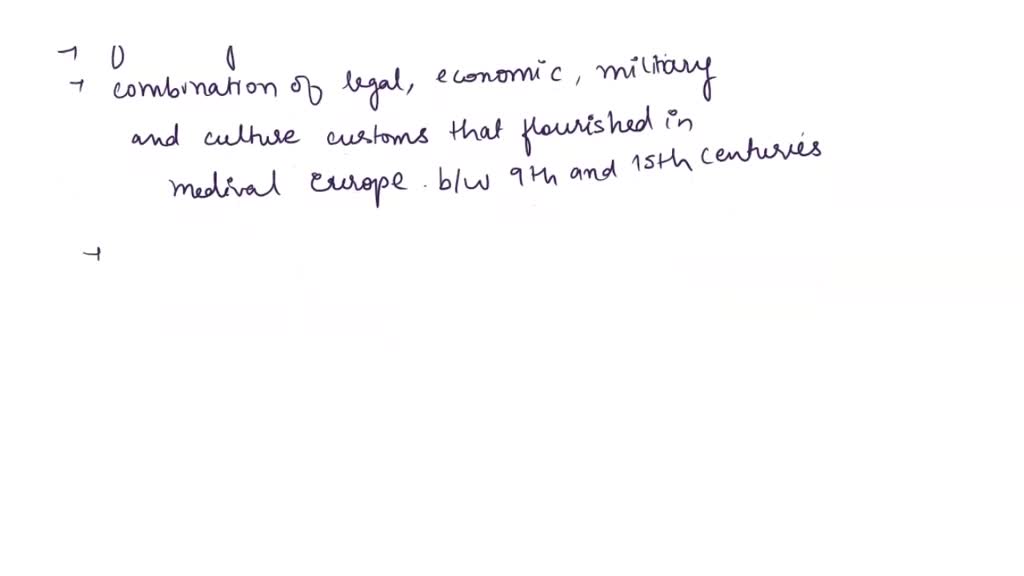 → combination of legal, economic, military
and culture customs that flourished in
medival Europe. b/w 9th and 15th centuries
→